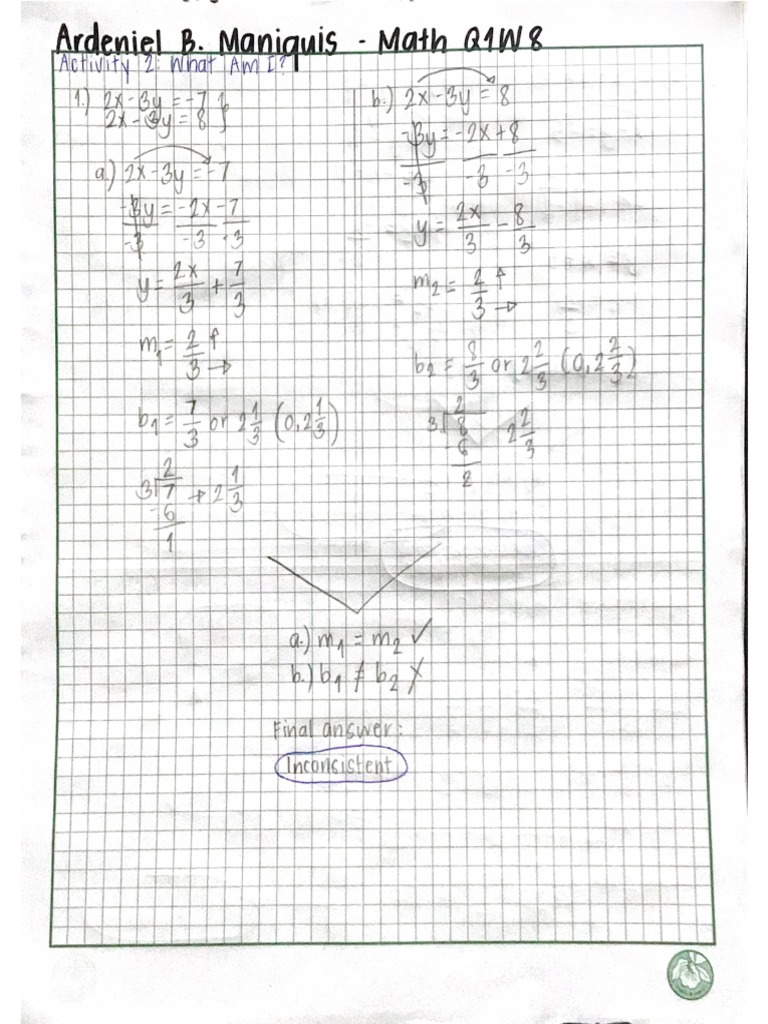 Ardeniel B. Maniquis - Math Q1W8
Activity 2: What Am I?
1.) 2x-3y=-7 }
2x-3y=8
a.) 2x-3y=-7
-3y = -2x-7
-3 -3 -3
y = 2x/3 + 7/3
m1 = 2/3 ↑ →
b1 = 7/3 or 2 1/3 (0, 2 1/3)
2
3⟌7 → 2 1/3
-6
1
b.) 2x-3y=8
-3y = -2x+8
-3 -3 -3
y = 2x/3 - 8/3
m2 = 2/3 ↑ →
b2 = 8/3 or 2 2/3 (0, 2 2/3)
2
3⟌8 2 2/3
-6
2
a.) m1 = m2 ✓
b.) b1 ≠ b2 ✗
Final answer:
Inconsistent